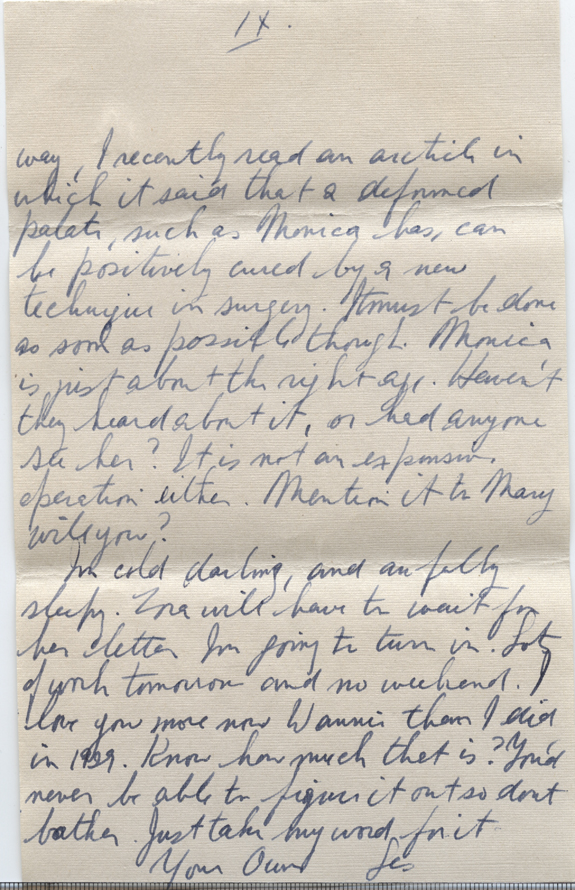 IX.
way, I recently read an article in
which it said that a deformed
palate, such as Monica has, can
be positively cured by a new
technique in surgery. It must be done
as soon as possible though. Monica
is just about the right age. Haven't
they heard about it, or had anyone
see her? It is not an expensive
operation either. Mention it to Mary
will you?
I'm cold darling, and awfully
sleepy. Zora will have to wait for
her letter I'm going to turn in. Lots
of work tomorrow and no weekend. I
love you more now Wannie than I did
in 1939. Know how much that is? You'd
never be able to figure it out so dont
bother. Just take my word for it
Your Own Les